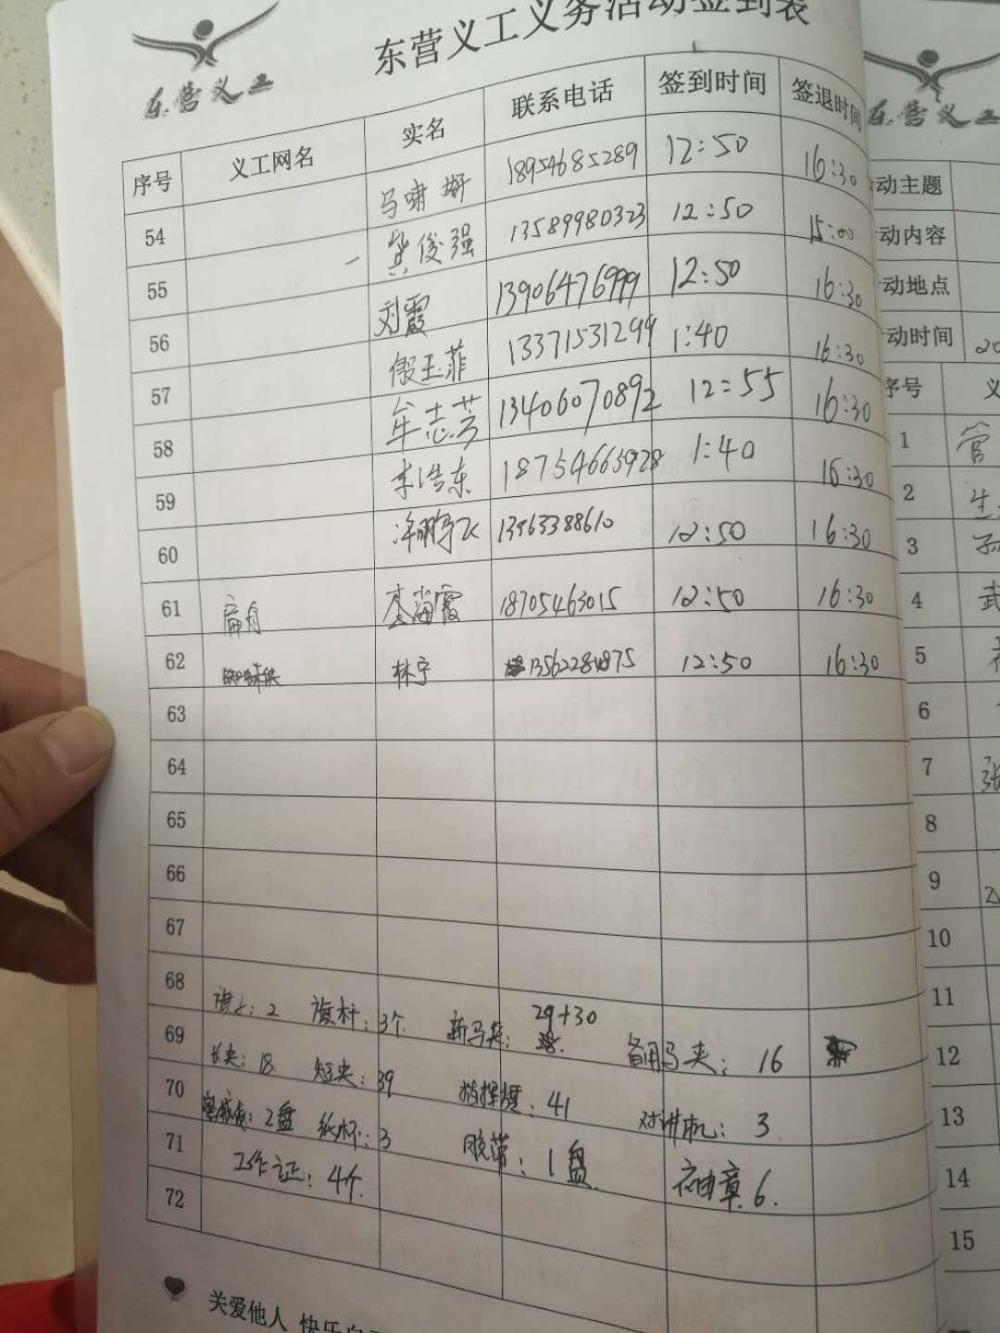 东营义工义务活动签到表
东营义工
序号 义工网名 实名 联系电话 签到时间 签退时间
54 马啸 18954685289 12:50 16:30
55 龚俊强 13589980323 12:50 15:00
56 刘霞 13906476999 12:50 16:30
57 殷玉菲 13371531299 1:40 16:30
58 牟志芳 13406070892 12:55 16:30
59 李浩东 18754663928 1:40 16:30
60 13963388610 12:50 16:30
61 李海霞 18705463015 12:50 16:30
62 林宁 12:50 16:30
63
64
65
66
67
68
69 2 旗杆:3个 新马夹: 29+30 备用马夹: 16
70 长夹:18 短夹:39 指挥旗:41 对讲机: 3
71 2盘 纸杯:3 胶带:1盘
72 工作证:4个. 袖章.6.
关爱他人 快乐自
东营义工
动主题
动内容
动地点
动时间 20
序号 义
1 管
2 生
3 孙
4 武
5
6
7 张
8
9
10
11
12
13
14
15